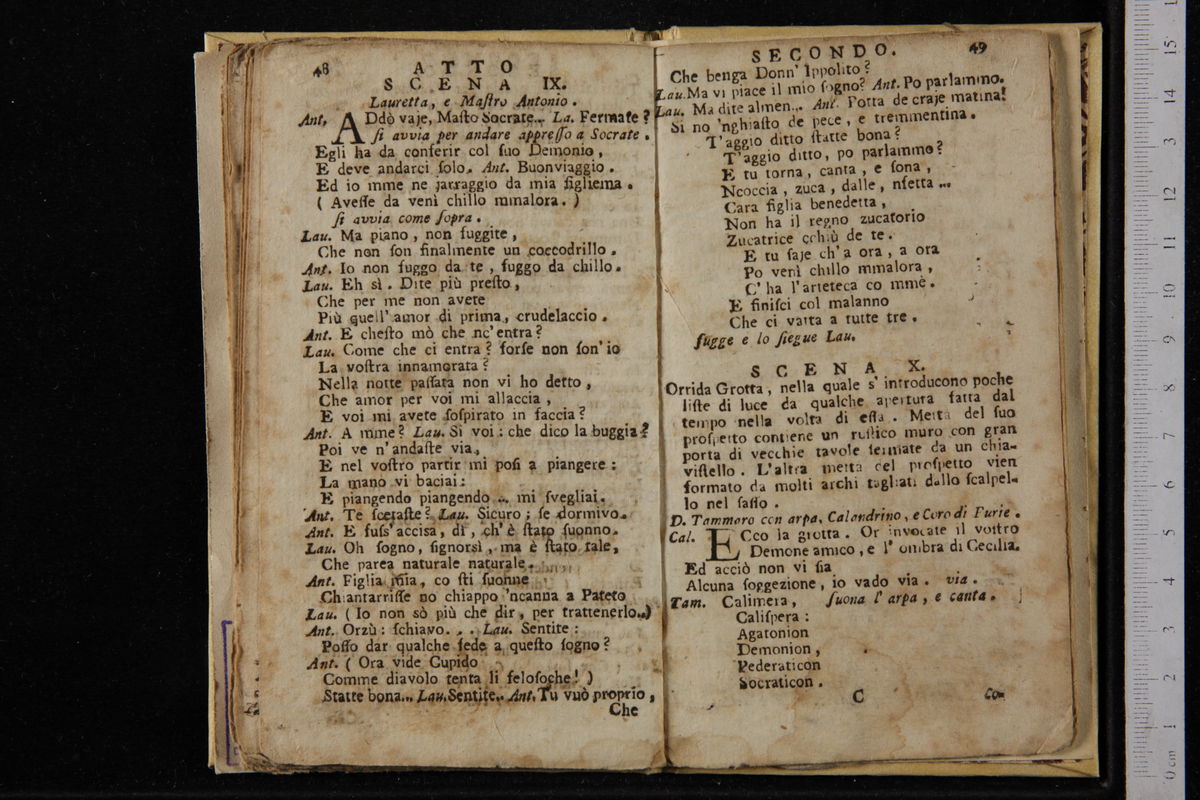 48
ATTO
SCENA IX.
Lauretta, e Maſtro Antonio.
Ant. ADdò vaje, Maſto Socrate... La. Fermate?
ſi avvia per andare appreſſo a Socrate.
Egli ha da conferir col ſuo Demonio,
E deve andarci ſolo. Ant. Buonviaggio.
Ed io mme ne jarraggio da mia figliema.
(Aveſſe da venì chillo mmalora.)
ſi avvia come ſopra.
Lau. Ma piano, non fuggite,
Che non ſon finalmente un coccodrillo.
Ant. Io non fuggo da te, fuggo da chillo.
Lau. Eh sì. Dite più preſto,
Che per me non avete
Più quell' amor di prima, crudelaccio.
Ant. E cheſto mò che nc' entra?
Lau. Come che ci entra? forſe non ſon' io
La voſtra innamorata?
Nella notte paſſata non vi ho detto,
Che amor per voi mi allaccia,
E voi mi avete ſoſpirato in faccia?
Ant. A mme? Lau. Sì voi: che dico la buggia?
Poi ve n' andaſte via,
E nel voſtro partir mi poſi a piangere:
La mano vi baciai:
E piangendo piangendo ... mi ſvegliai.
Ant. Te ſcetaſte? Lau. Sicuro; ſe dormivo.
Ant. E fuſs' acciſa, dì, ch' è ſtato ſuonno.
Lau. Oh ſogno, ſignorsì, ma è ſtato tale,
Che parea naturale naturale.
Ant. Figlia mia, co ſti ſuonne
Chiantarriſſe no chiappo 'ncanna a Pateto
Lau. (Io non sò più che dir, per trattenerlo..)
Ant. Orzù: ſchiavo. . . Lau. Sentite:
Poſſo dar qualche fede a queſto ſogno?
Ant. (Ora vide Cupido
Comme diavolo tenta li feloſoche!)
Statte bona... Lau. Sentite.. Ant. Tu vuò proprio,
Che
SECONDO.
49
Che benga Donn' Ippolito?
Lau. Ma vi piace il mio ſogno? Ant. Po parlammo.
Lau. Ma dite almen... Ant. Potta de craje matina!
Si no 'nghiaſto de pece, e tremmentina.
T' aggio ditto ſtatte bona?
T' aggio ditto, po parlammo?
E tu torna, canta, e ſona,
Ncoccia, zuca, dalle, nſetta ...
Cara figlia benedetta,
Non ha il regno zucatorio
Zucatrice cchiù de te.
E tu ſaje ch' a ora, a ora
Po venì chillo mmalora,
C' ha l' arteteca co mmè.
E finiſci col malanno
Che ci vatta a tutte tre.
fugge e lo ſiegue Lau.
SCENA X.
Orrida Grotta, nella quale s' introducono poche
liſte di luce da qualche apertura fatta dal
tempo nella volta di eſſa. Metta del ſuo
proſpetto contiene un ruſtico muro con gran
porta di vecchie tavole fermate da un chia-
viſtello. L' altra metta del proſpetto vien
formato da molti archi tagliati dallo ſcalpel-
lo nel ſaſſo.
D. Tammaro con arpa, Calandrino, e Coro di Furie.
Cal. ECco la grotta. Or invocate il voſtro
Demone amico, e l' ombra di Cecilia.
Ed acciò non vi ſia
Alcuna ſoggezione, io vado via. via.
Tam. Calimera, ſuona l' arpa, e canta.
Caliſpera:
Agatonion
Demonion,
Pederaticon
Socraticon.
C
Co-
0 cm 1 2 3 4 5 6 7 8 9 10 11 12 13 14 15